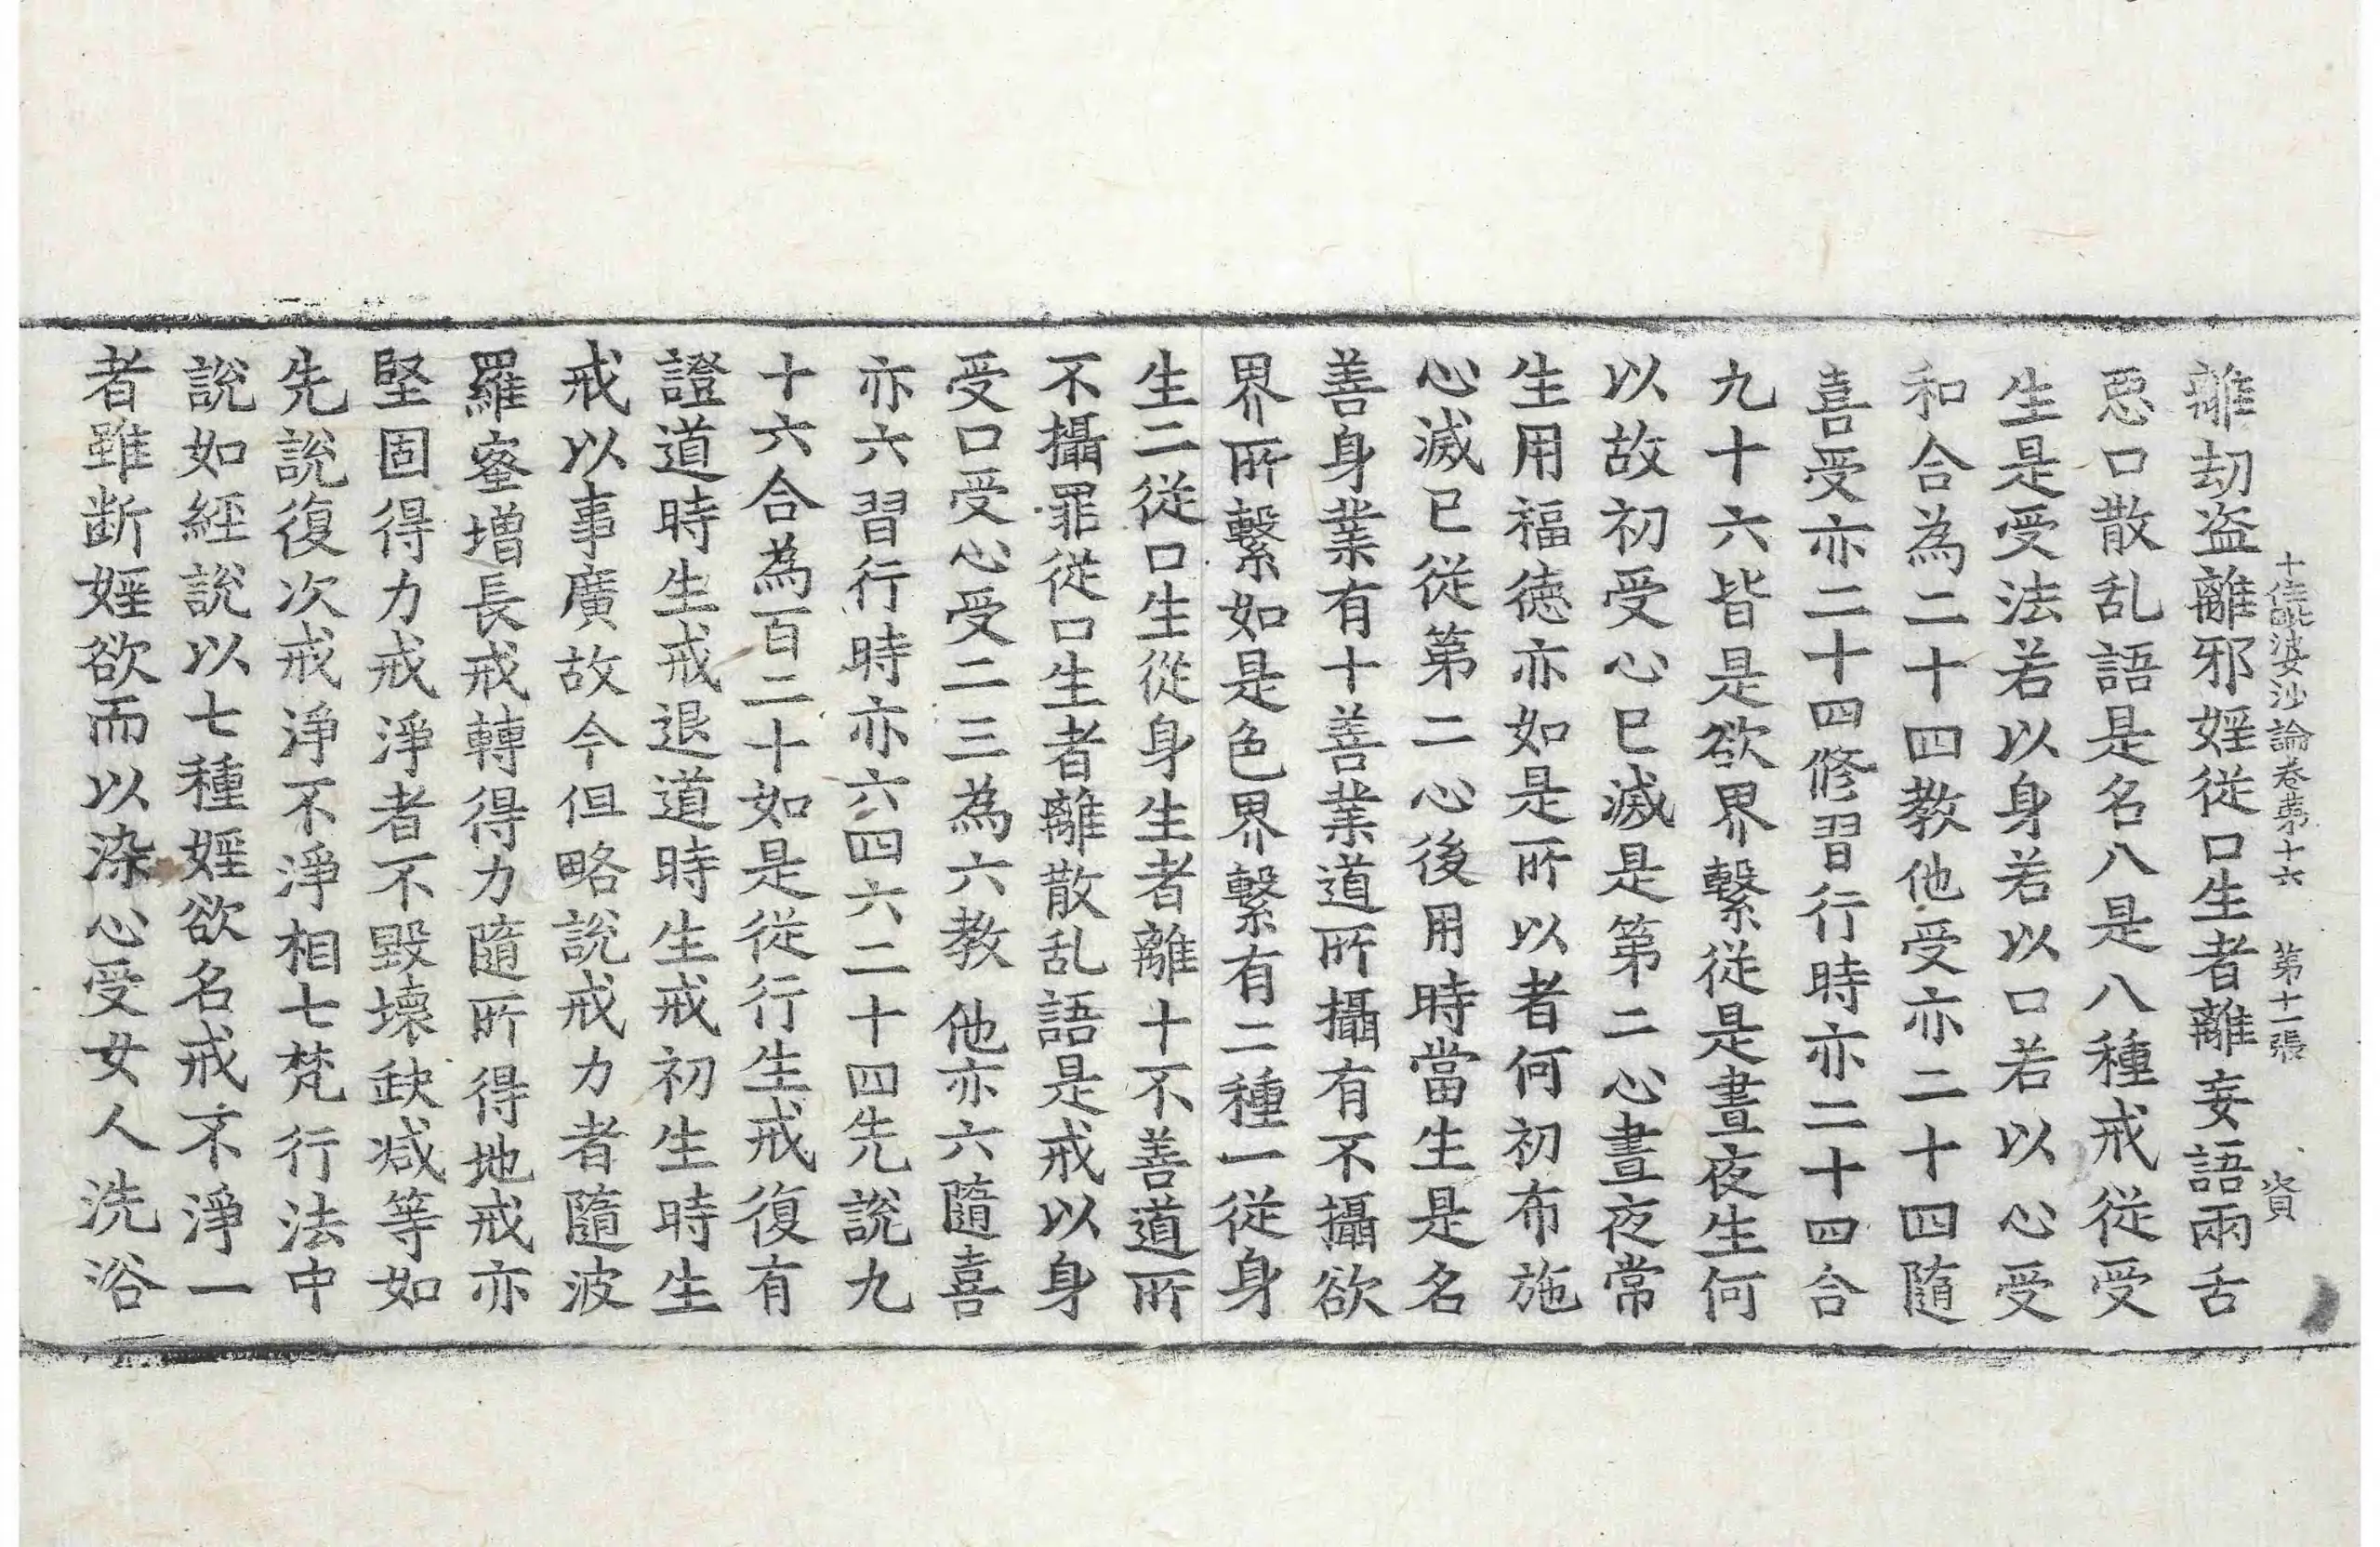 十住毗婆沙論卷第十六 第十一張 資
離劫盜離邪婬從口生者離妄語兩舌
惡口散乱語是名八是八種戒從受
生是受法若以身若以口若以心受
和合為二十四教他受亦二十四隨
喜受亦二十四修習行時亦二十四合
九十六皆是欲界繫從是晝夜生何
以故初受心已滅是第二心晝夜常
生用福德亦如是所以者何初布施
心滅已從第二心後用時當生是名
善身業有十善業道所攝有不攝欲
界所繫如是色界繫有二種一從身
生二從口生從身生者離十不善道所
不攝罪從口生者離散乱語是戒以身
受口受心受二三為六教他亦六隨喜
亦六習行時亦六四六二十四先說九
十六合為百二十如是從行生戒復有
證道時生戒退道時生戒初生時生
戒以事廣故今但略說戒力者隨波
羅蜜增長戒轉得力隨所得地戒亦
堅固得力戒淨者不毀壞缺减等如
先說復次戒淨不淨相七梵行法中
說如經說以七種婬欲名戒不淨一
者雖断婬欲而以染心受女人洗浴